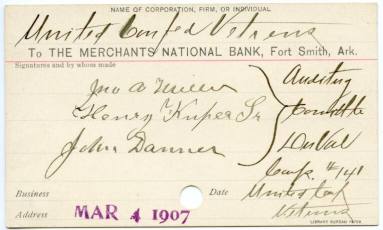 NAME OF CORPORATION, FIRM, OR INDIVIDUAL
United Confed Vetrens
To THE MERCHANTS NATIONAL BANK, Fort Smith, Ark.
Signatures and by whom made
Jno A Miller
Henry Kuper Sr
John Danner
Auditing
Committe
DuVal
Camp #141
United Conf
Vetrens
Business
Date
Address
MAR 4 1907
LIBRARY BUREAU